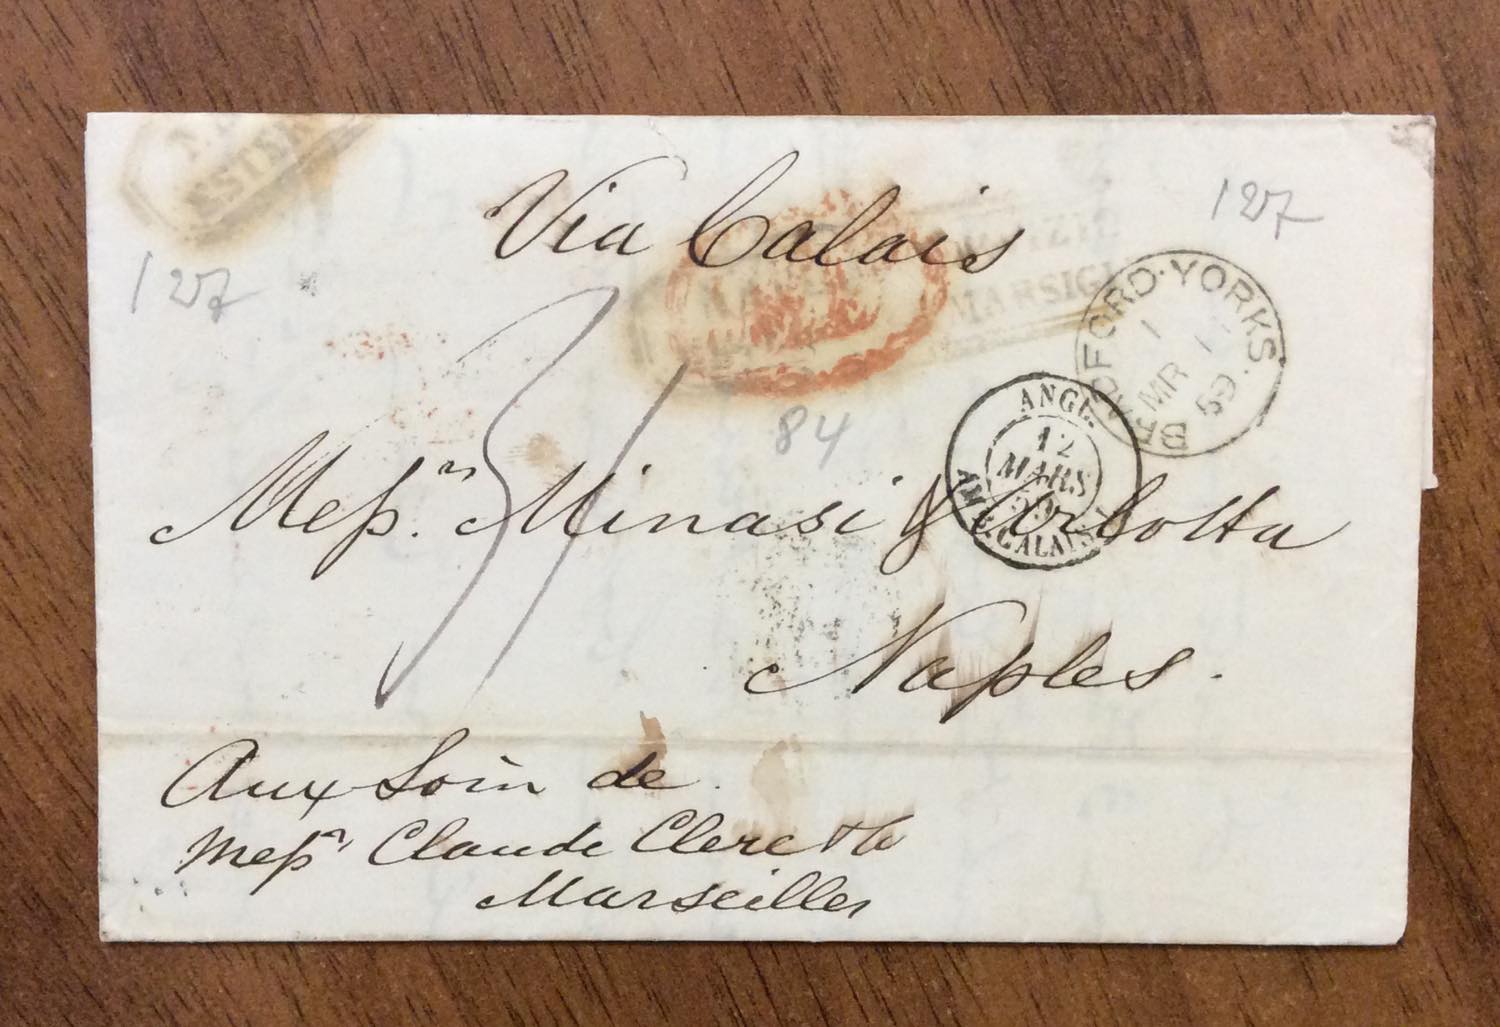 Via Calais
127
127
MARSIGL
BRADFORD·YORKS·
1
MR
59
ANGL.
12
MARS
59
AMB. CALAIS
84
Messrs. Minasi & Arlotta
Naples.
Aux Soin de
Messrs Claude Clerc & Co
Marseilles